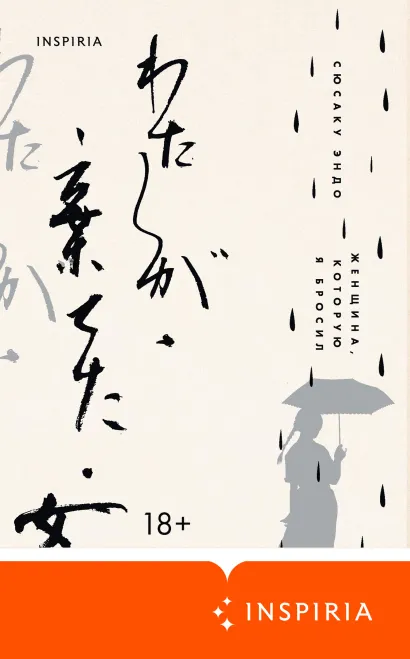 INSPIRIA
わたしが・
棄てた・女
わた
が・
СЮСАКУ ЭНДО
ЖЕНЩИНА,
КОТОРУЮ
Я БРОСИЛ
18+
INSPIRIA